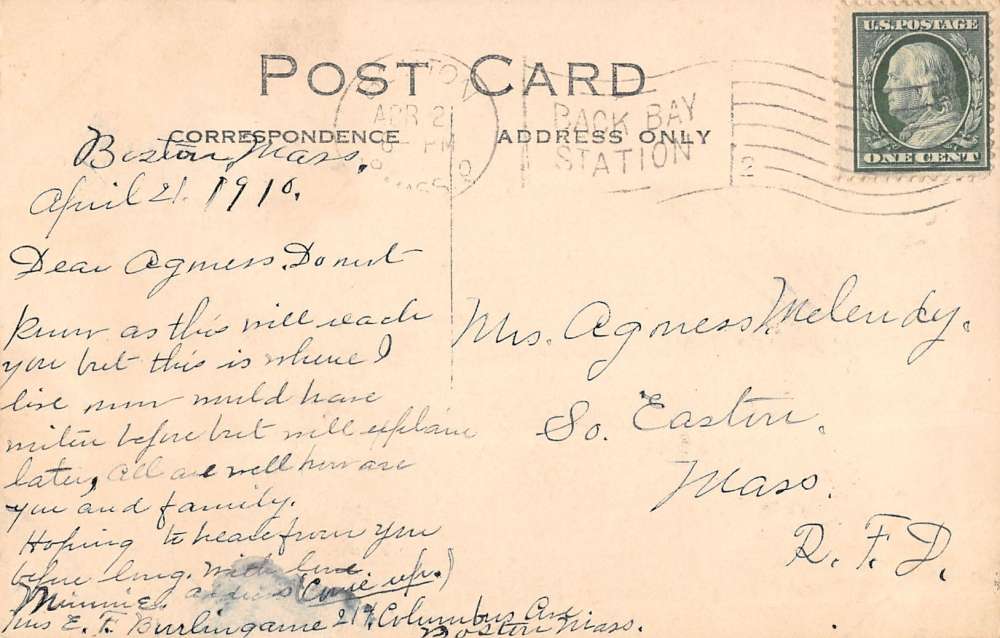 POST CARD
CORRESPONDENCE
ADDRESS ONLY
U.S. POSTAGE
ONE CENT
APR 21
PM
BACK BAY
STATION
2
Boston, Mass.
April 21. 1910.
Dear Agness. Do not
know as this will reach
you but this is where I
live now would have
writen before but will explain
later, All are well how are
you and family.
Hoping to hear from you
before long. With love
Minnie. address (Come up.)
Mrs E. F. Burlingame 217 Columbus Ave
Boston Mass.
Mrs. Agness Melendy.
So. Easton.
Mass.
R. F. D.